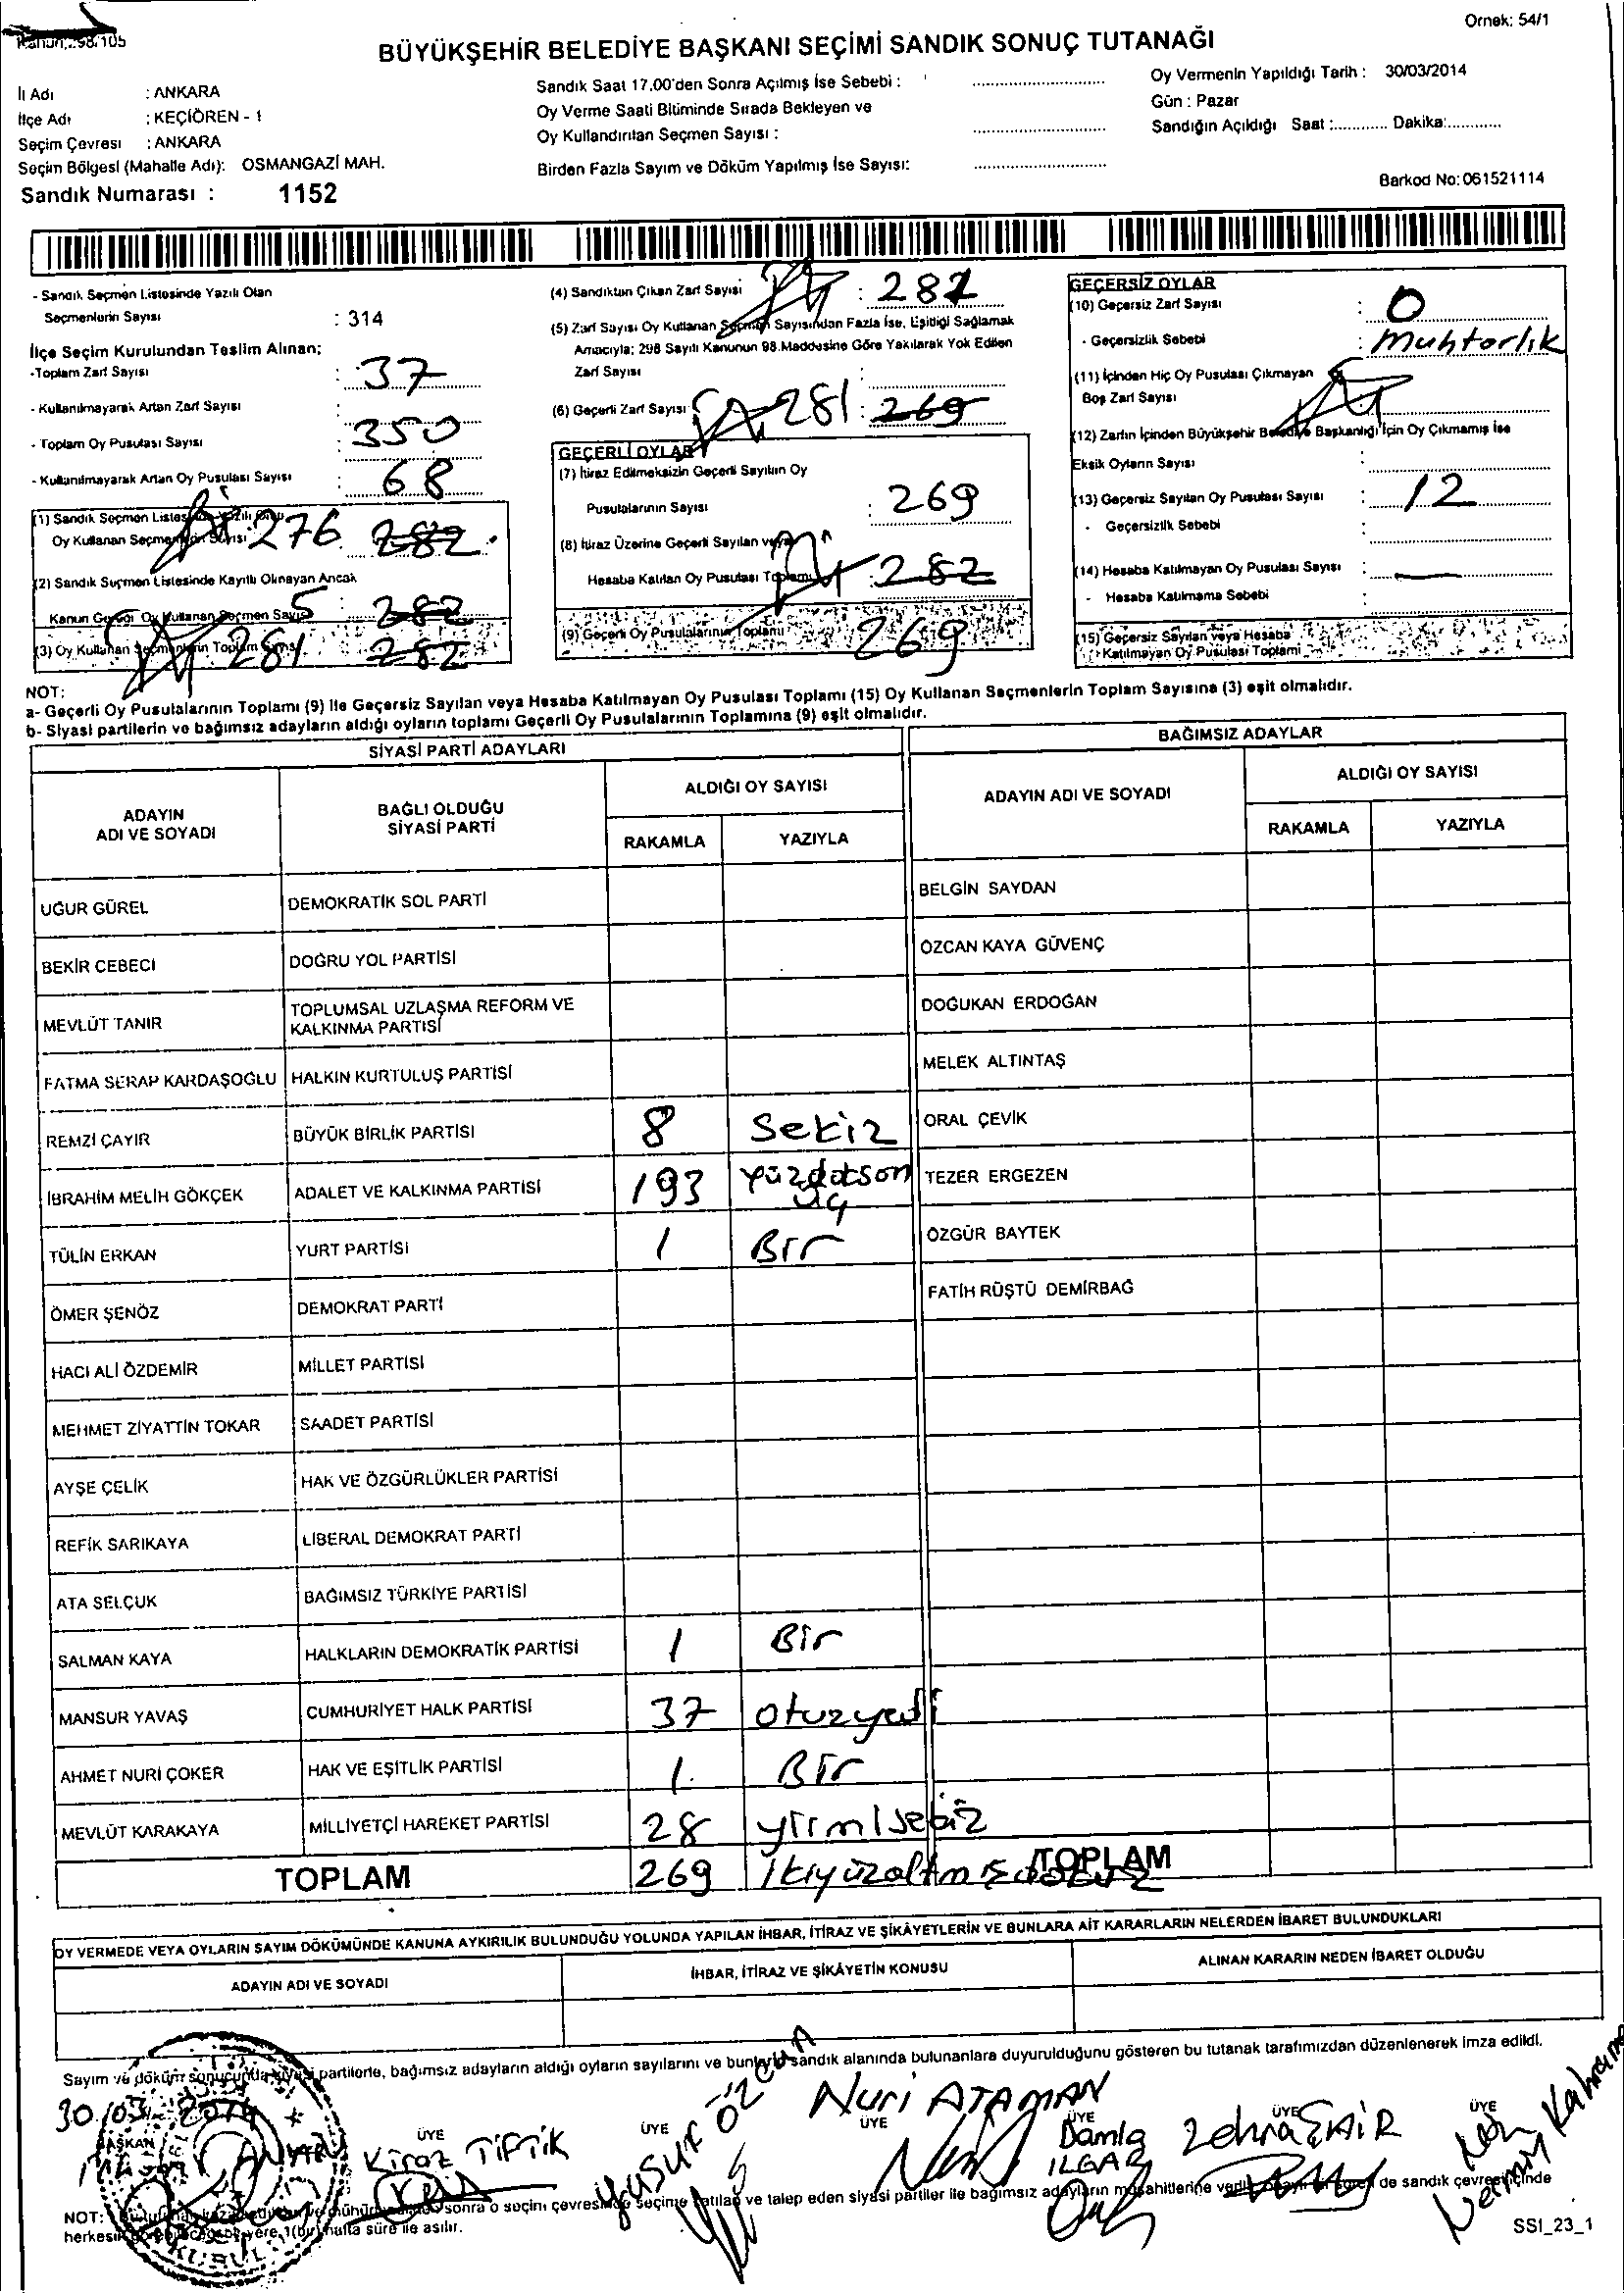 Kanun:298/105
Örnek: 54/1
BÜYÜKŞEHİR BELEDİYE BAŞKANI SEÇİMİ SANDIK SONUÇ TUTANAĞI
İl Adı : ANKARA
İlçe Adı : KEÇİÖREN - 1
Seçim Çevresi : ANKARA
Seçim Bölgesi (Mahalle Adı): OSMANGAZİ MAH.
Sandık Numarası : 1152
Sandık Saat 17.00'den Sonra Açılmış İse Sebebi :
Oy Verme Saati Bitiminde Sırada Bekleyen ve
Oy Kullandırılan Seçmen Sayısı :
Birden Fazla Sayım ve Döküm Yapılmış İse Sayısı:
Oy Vermenin Yapıldığı Tarih : 30/03/2014
Gün : Pazar
Sandığın Açıldığı Saat :............ Dakika:............
Barkod No: 061521114
- Sandık Seçmen Listesinde Yazılı Olan
Seçmenlerin Sayısı : 314
İlçe Seçim Kurulundan Teslim Alınan;
-Toplam Zarf Sayısı : 37
- Kullanılmayarak Artan Zarf Sayısı :
- Toplam Oy Pusulası Sayısı : 350
- Kullanılmayarak Artan Oy Pusulası Sayısı : 68
(1) Sandık Seçmen Listesinde Yazılı Olan
Oy Kullanan Seçmenlerin Sayısı : 276 282
(2) Sandık Seçmen Listesinde Kayıtlı Olmayan Ancak
Kanun Gereği Oy Kullanan Seçmen Sayısı 5 : 282
(3) Oy Kullanan Seçmenlerin Toplam Sayısı 281 282
(4) Sandıktan Çıkan Zarf Sayısı : 281
(5) Zarf Sayısı Oy Kullanan Seçmen Sayısından Fazla İse, Eşitliği Sağlamak
Amacıyla; 298 Sayılı Kanunun 98.Maddesine Göre Yakılarak Yok Edilen
Zarf Sayısı :
(6) Geçerli Zarf Sayısı 281 : 269
GEÇERLİ OYLAR
(7) İtiraz Edilmeksizin Geçerli Sayılan Oy
Pusulalarının Sayısı : 269
(8) İtiraz Üzerine Geçerli Sayılan veya
Hesaba Katılan Oy Pusulası Toplamı : 282
(9) Geçerli Oy Pusulalarının Toplamı : 269
GEÇERSİZ OYLAR
(10) Geçersiz Zarf Sayısı : 0
- Geçersizlik Sebebi : Muhtarlık
(11) İçinden Hiç Oy Pusulası Çıkmayan
Boş Zarf Sayısı
(12) Zarfın İçinden Büyükşehir Belediye Başkanlığı İçin Oy Çıkmamış İse
Eksik Oyların Sayısı :
(13) Geçersiz Sayılan Oy Pusulası Sayısı : 12
- Geçersizlik Sebebi :
(14) Hesaba Katılmayan Oy Pusulası Sayısı : —
- Hesaba Katılmama Sebebi :
(15) Geçersiz Sayılan veya Hesaba
Katılmayan Oy Pusulası Toplamı
NOT:
a- Geçerli Oy Pusulalarının Toplamı (9) ile Geçersiz Sayılan veya Hesaba Katılmayan Oy Pusulası Toplamı (15) Oy Kullanan Seçmenlerin Toplam Sayısına (3) eşit olmalıdır.
b- Siyasi partilerin ve bağımsız adayların aldığı oyların toplamı Geçerli Oy Pusulalarının Toplamına (9) eşit olmalıdır.
SİYASİ PARTİ ADAYLARI
BAĞIMSIZ ADAYLAR
ADAYIN ADI VE SOYADI
BAĞLI OLDUĞU SİYASİ PARTİ
ALDIĞI OY SAYISI
RAKAMLA YAZIYLA
ADAYIN ADI VE SOYADI
ALDIĞI OY SAYISI
RAKAMLA YAZIYLA
UĞUR GÜREL DEMOKRATİK SOL PARTİ BELGİN SAYDAN
BEKİR CEBECİ DOĞRU YOL PARTİSİ ÖZCAN KAYA GÜVENÇ
MEVLÜT TANIR TOPLUMSAL UZLAŞMA REFORM VE KALKINMA PARTİSİ DOĞUKAN ERDOĞAN
FATMA SERAP KARDAŞOĞLU HALKIN KURTULUŞ PARTİSİ MELEK ALTINTAŞ
REMZİ ÇAYIR BÜYÜK BİRLİK PARTİSİ 8 Sekiz ORAL ÇEVİK
İBRAHİM MELİH GÖKÇEK ADALET VE KALKINMA PARTİSİ 193 Yüzdoksan üç TEZER ERGEZEN
TÜLİN ERKAN YURT PARTİSİ 1 Bir ÖZGÜR BAYTEK
ÖMER ŞENÖZ DEMOKRAT PARTİ FATİH RÜŞTÜ DEMİRBAĞ
HACI ALİ ÖZDEMİR MİLLET PARTİSİ
MEHMET ZİYATTİN TOKAR SAADET PARTİSİ
AYŞE ÇELİK HAK VE ÖZGÜRLÜKLER PARTİSİ
REFİK SARIKAYA LİBERAL DEMOKRAT PARTİ
ATA SELÇUK BAĞIMSIZ TÜRKİYE PARTİSİ
SALMAN KAYA HALKLARIN DEMOKRATİK PARTİSİ 1 Bir
MANSUR YAVAŞ CUMHURİYET HALK PARTİSİ 37 otuzyedi
AHMET NURİ ÇOKER HAK VE EŞİTLİK PARTİSİ 1 Bir
MEVLÜT KARAKAYA MİLLİYETÇİ HAREKET PARTİSİ 28 yirmisekiz
TOPLAM 269 İkiyüzaltmışdokuz TOPLAM
OY VERMEDE VEYA OYLARIN SAYIM DÖKÜMÜNDE KANUNA AYKIRILIK BULUNDUĞU YOLUNDA YAPILAN İHBAR, İTİRAZ VE ŞİKÂYETLERİN VE BUNLARA AİT KARARLARIN NELERDEN İBARET BULUNDUKLARI
ADAYIN ADI VE SOYADI İHBAR, İTİRAZ VE ŞİKÂYETİN KONUSU ALINAN KARARIN NEDEN İBARET OLDUĞU
Sayım ve döküm sonucunda siyasi partilerle, bağımsız adayların aldığı oyların sayılarını ve bunların sandık alanında bulunanlara duyurulduğunu gösteren bu tutanak tarafımızdan düzenlenerek imza edildi.
30/03/2014
BAŞKAN ÜYE ÜYE ÜYE ÜYE ÜYE ÜYE
Kiraz TİFTİK
Yusuf Özcan
Nuri ATAMAN
Damla ILGAR
Zehra
NOT: sonra o seçim çevresinde seçime katılan ve talep eden siyasi partiler ile bağımsız adayların müşahitlerine de sandık çevresi içinde
herkesin yere, 1(bir) hafta süre ile asılır.
SSI_23_1